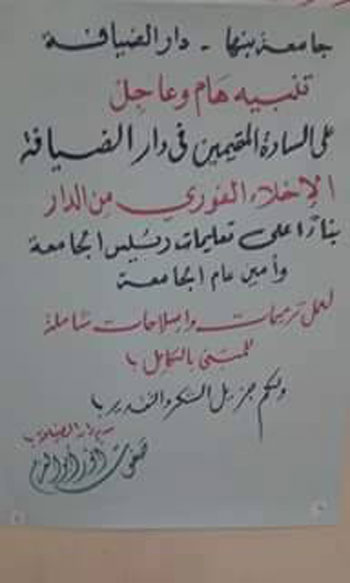 جامعة بنها - دار الضيافة
تنبيه هام وعاجل
على السادة المقيمين فى دار الضيافة
الإخلاء الفوري من الدار
بناءًا على تعليمات رئيس الجامعة
وأمين عام الجامعة
لعمل ترميمات وإصلاحات شاملة
للمبنى بالكامل
ولكم جزيل الشكر والتقدير
مدير دار الضيافة
صفوت أنور أبو العز